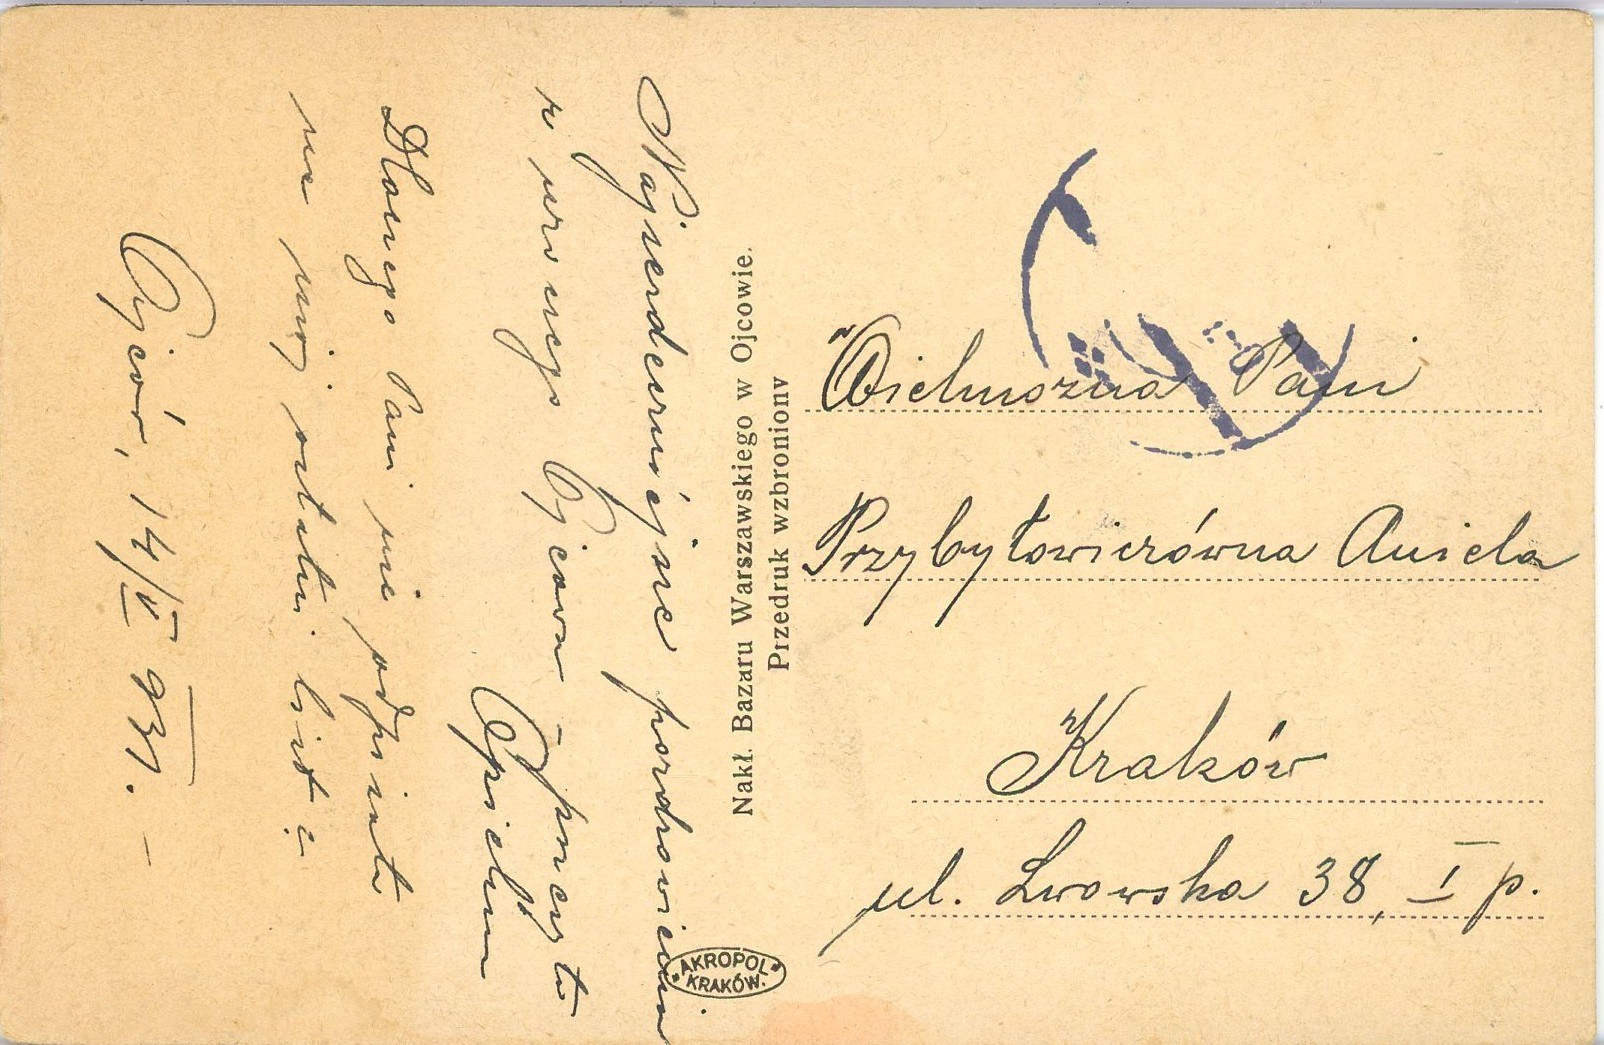 Najserdeczniejsze pozdrowienia
z uroczego Ojcowa – przesyła
Dlaczego Pani nie odpisała
na mój ostatni list?
Ojców, 14/V 931. –
Nakł. Bazaru Warszawskiego w Ojcowie.
Przedruk wzbroniony
AKROPOL
KRAKÓW.
Wielmożna Pani
Przybyłowiczówna Aniela
Kraków
ul. Lwowska 38, I p.